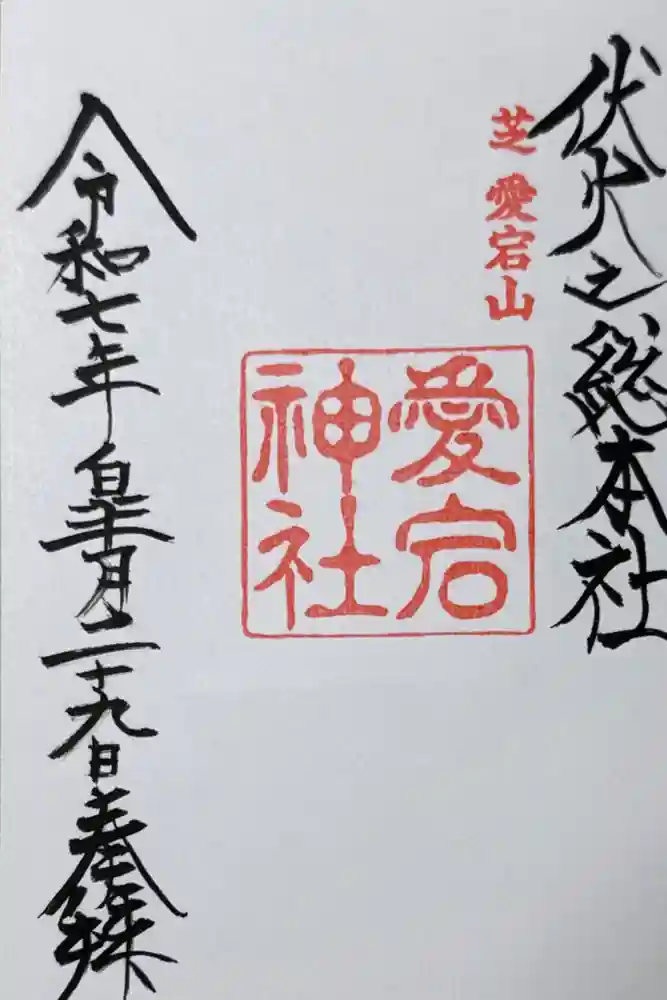 伏火之総本社
芝 愛宕山
愛宕
神社
令和七年皐月二十九日奉拝